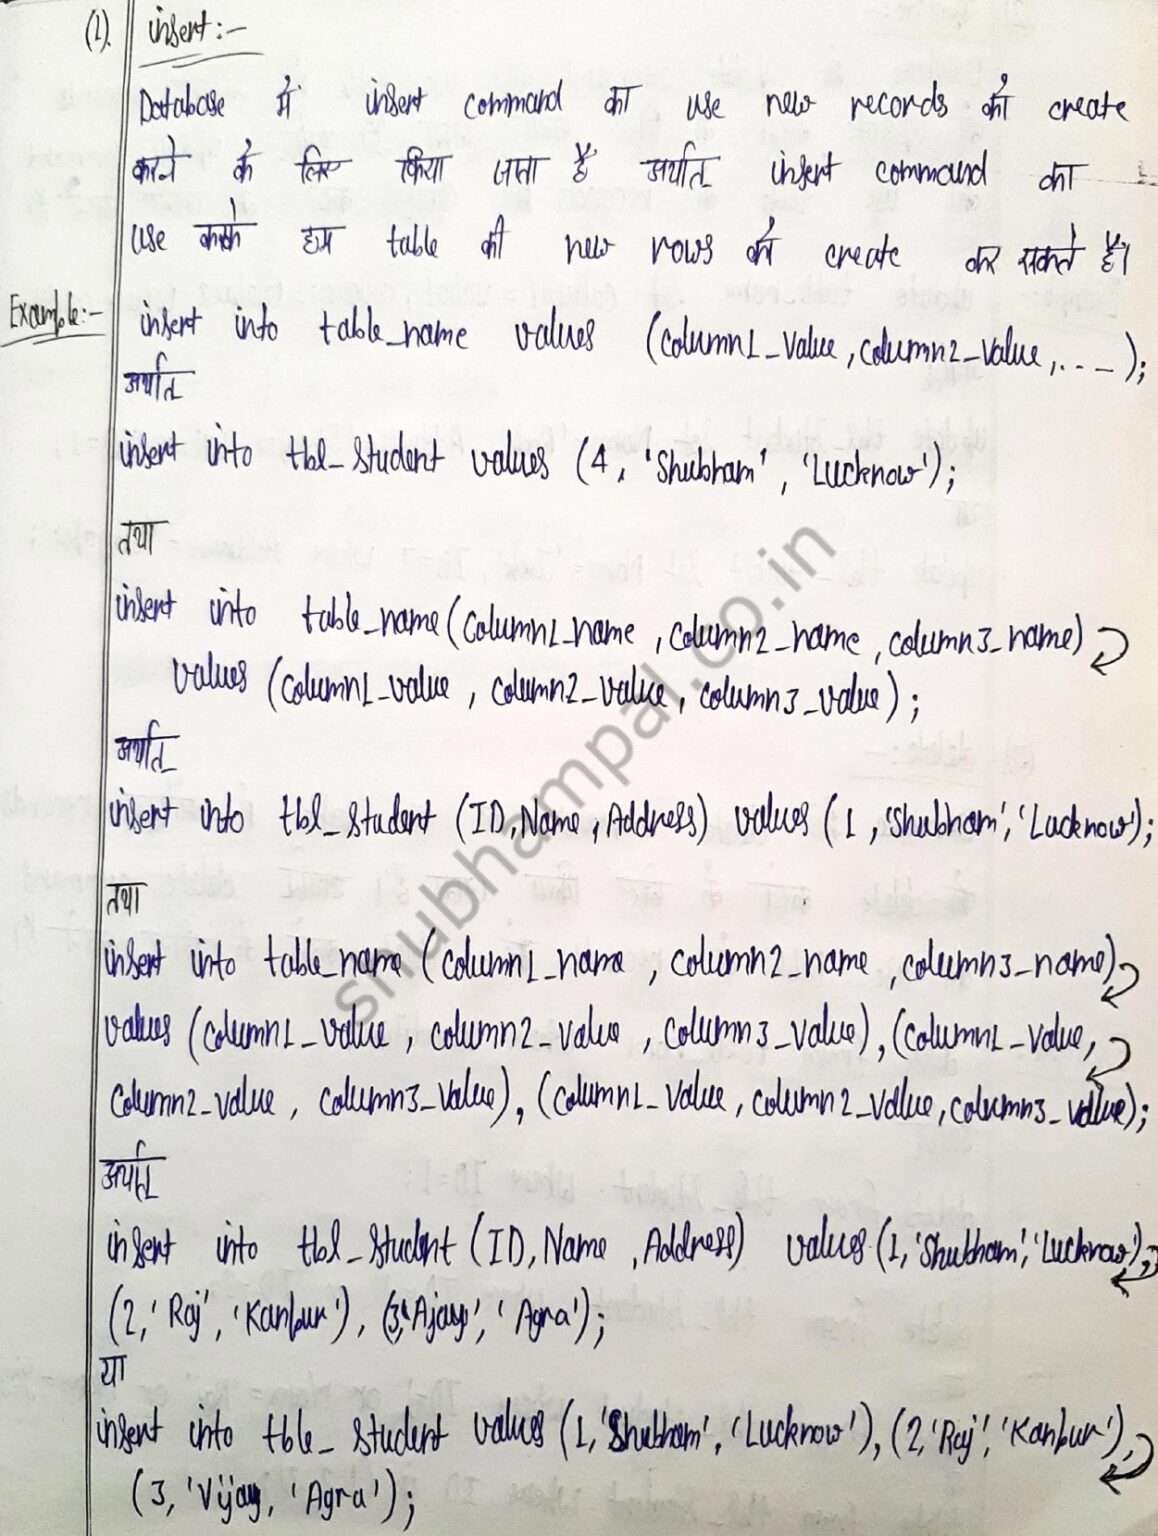 (1). insert:-
Database में insert command का use new records को create
करने के लिए किया जाता है अर्थात insert command का
use करके हम table की new rows को create कर सकते हैं।
Example:- insert into table_name values (column1_value, column2_value, ... _ );
अर्थात
insert into tbl_student values (4, 'Shubham', 'Lucknow');
तथा
insert into table_name (column1_name, column2_name, column3_name)
values (column1_value, column2_value, column3_value);
अर्थात
insert into tbl_student (ID, Name, Address) values (1, 'Shubham', 'Lucknow');
तथा
insert into table_name (column1_name, column2_name, column3_name)
values (column1_value, column2_value, column3_value), (column1_value,
column2_value, column3_value), (column1_value, column2_value, column3_value);
अर्थात
insert into tbl_student (ID, Name, Address) values (1, 'Shubham', 'Lucknow'),
(2, 'Raj', 'Kanpur'), (3, 'Ajay', 'Agra');
या
insert into tble_student values (1, 'Shubham', 'Lucknow'), (2, 'Raj', 'Kanpur'),
(3, 'Vijay, 'Agra');
shubhampal.co.in